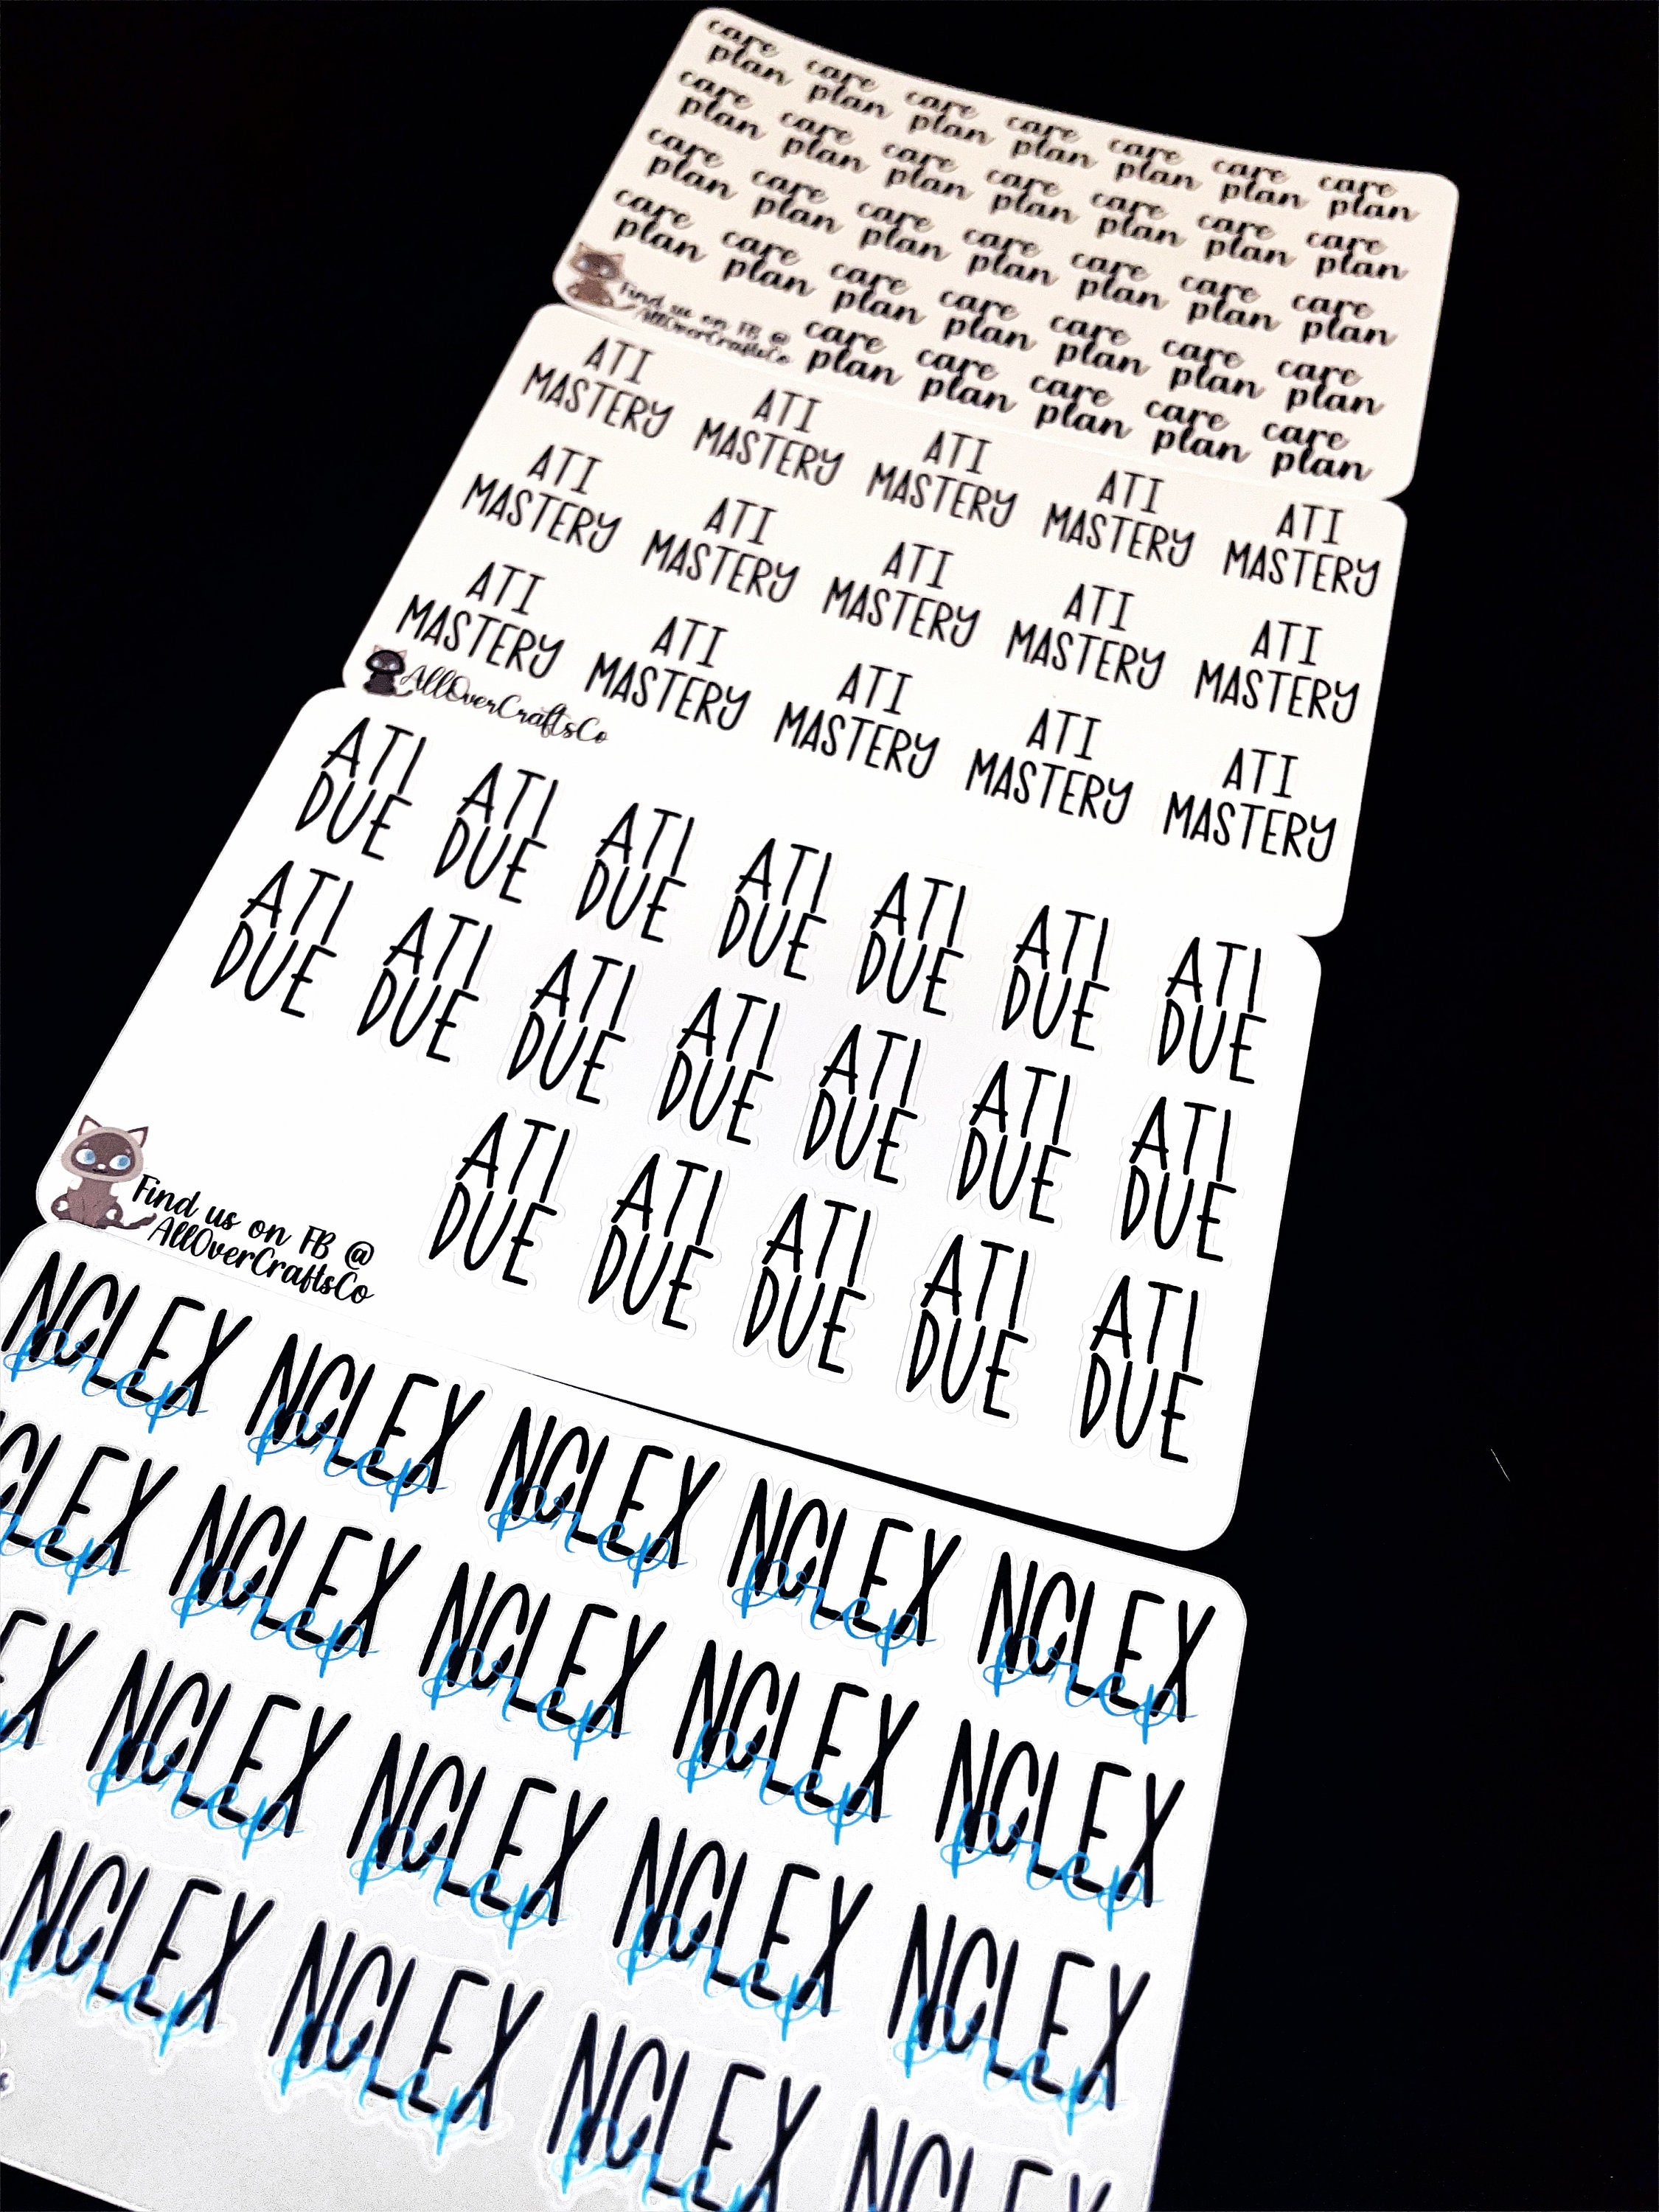 care care care care care care care
plan plan plan plan plan plan plan
care care care care care care care
plan plan plan plan plan plan plan
care care care care care care care
plan plan plan plan plan plan plan
care care care care care care care
plan plan plan plan plan plan plan
care care care care care
plan plan plan plan plan
Find us on FB @
AllOverCraftsCo
ATI ATI ATI ATI ATI
MASTERY MASTERY MASTERY MASTERY MASTERY
ATI ATI ATI ATI ATI
MASTERY MASTERY MASTERY MASTERY MASTERY
ATI ATI ATI ATI ATI
MASTERY MASTERY MASTERY MASTERY MASTERY
AllOverCraftsCo
ATI ATI ATI ATI ATI ATI ATI
DUE DUE DUE DUE DUE DUE DUE
ATI ATI ATI ATI ATI ATI ATI
DUE DUE DUE DUE DUE DUE DUE
ATI ATI ATI ATI ATI
DUE DUE DUE DUE DUE
Find us on FB @
AllOverCraftsCo
NCLEX NCLEX NCLEX NCLEX NCLEX
Prep Prep Prep Prep Prep
CLEX NCLEX NCLEX NCLEX NCLEX
rep Prep Prep Prep Prep
EX NCLEX NCLEX NCLEX NCLEX
Prep Prep Prep Prep
NCLEX NCLEX NCLEX NCLEX
Prep Prep Prep